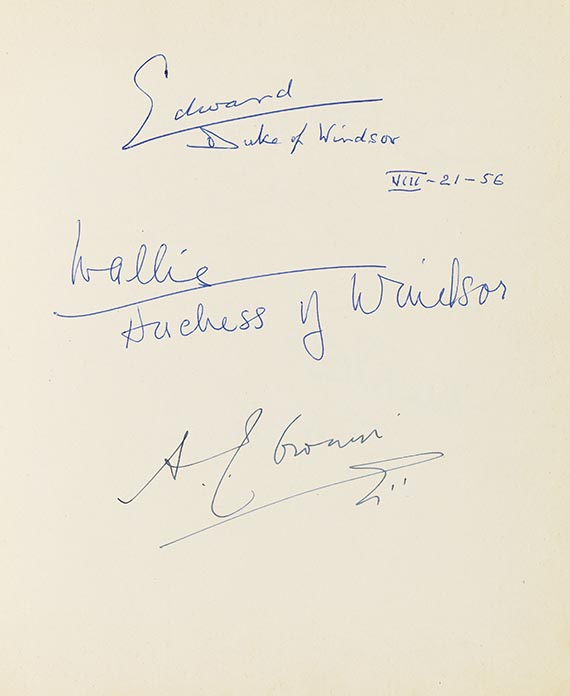 Edward
Duke of Windsor
VIII-21-56
Wallie
Duchess of Windsor
A. E.